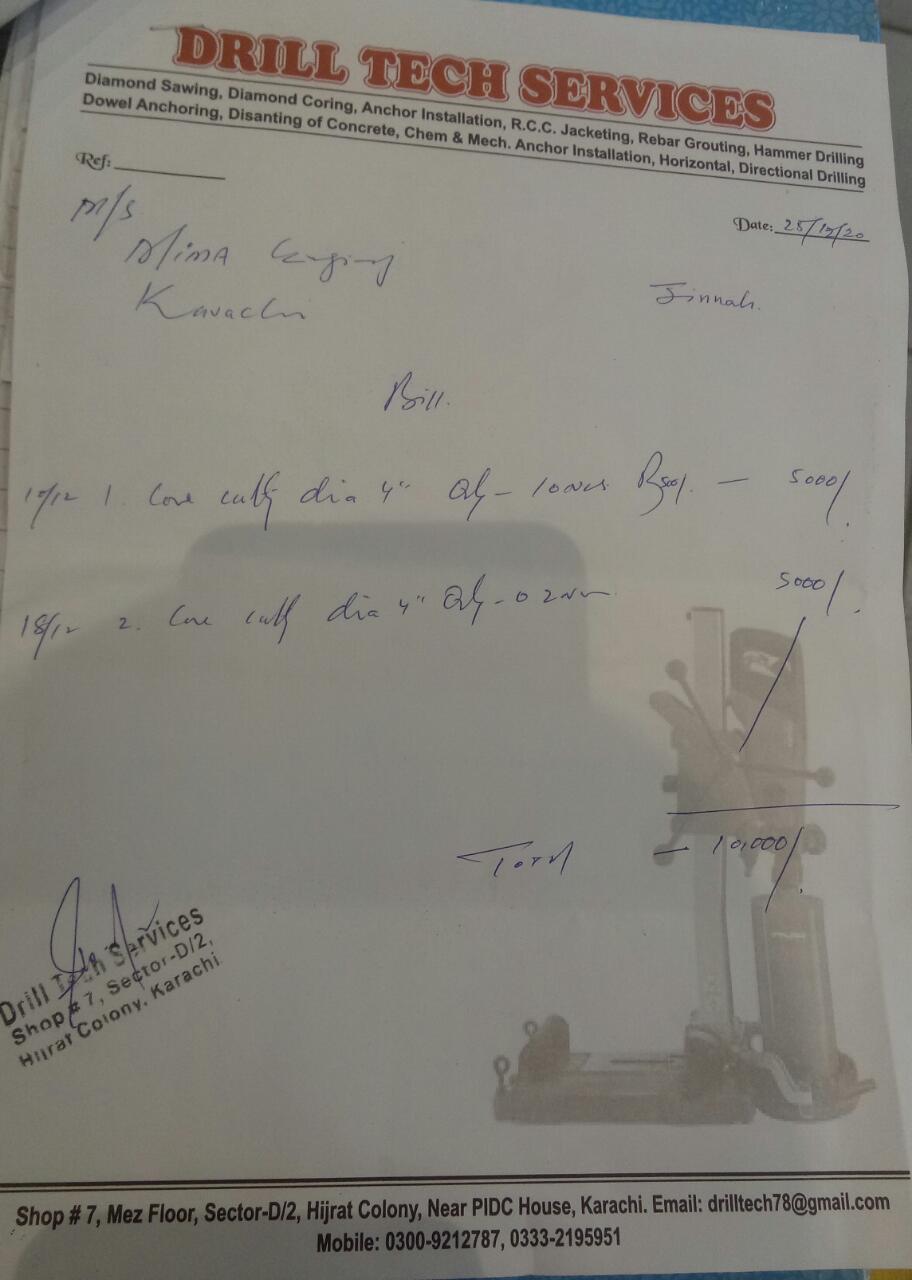 DRILL TECH SERVICES
Diamond Sawing, Diamond Coring, Anchor Installation, R.C.C. Jacketing, Rebar Grouting, Hammer Drilling
Dowel Anchoring, Disanting of Concrete, Chem & Mech. Anchor Installation, Horizontal, Directional Drilling
Ref:
Date: 25/12/20
M/S
Karachi
Jinnah.
Bill.
10/12 1. Core dia 4" Qty - 10 Nos R 500/. — 5000/.
18/12 2. Core dia 4" Qty - 02 5000/.
Total — 10,000/.
Drill Tech Services
Shop # 7, Sector-D/2,
Hijrat Colony, Karachi
Shop # 7, Mez Floor, Sector-D/2, Hijrat Colony, Near PIDC House, Karachi. Email: drilltech78@gmail.com
Mobile: 0300-9212787, 0333-2195951